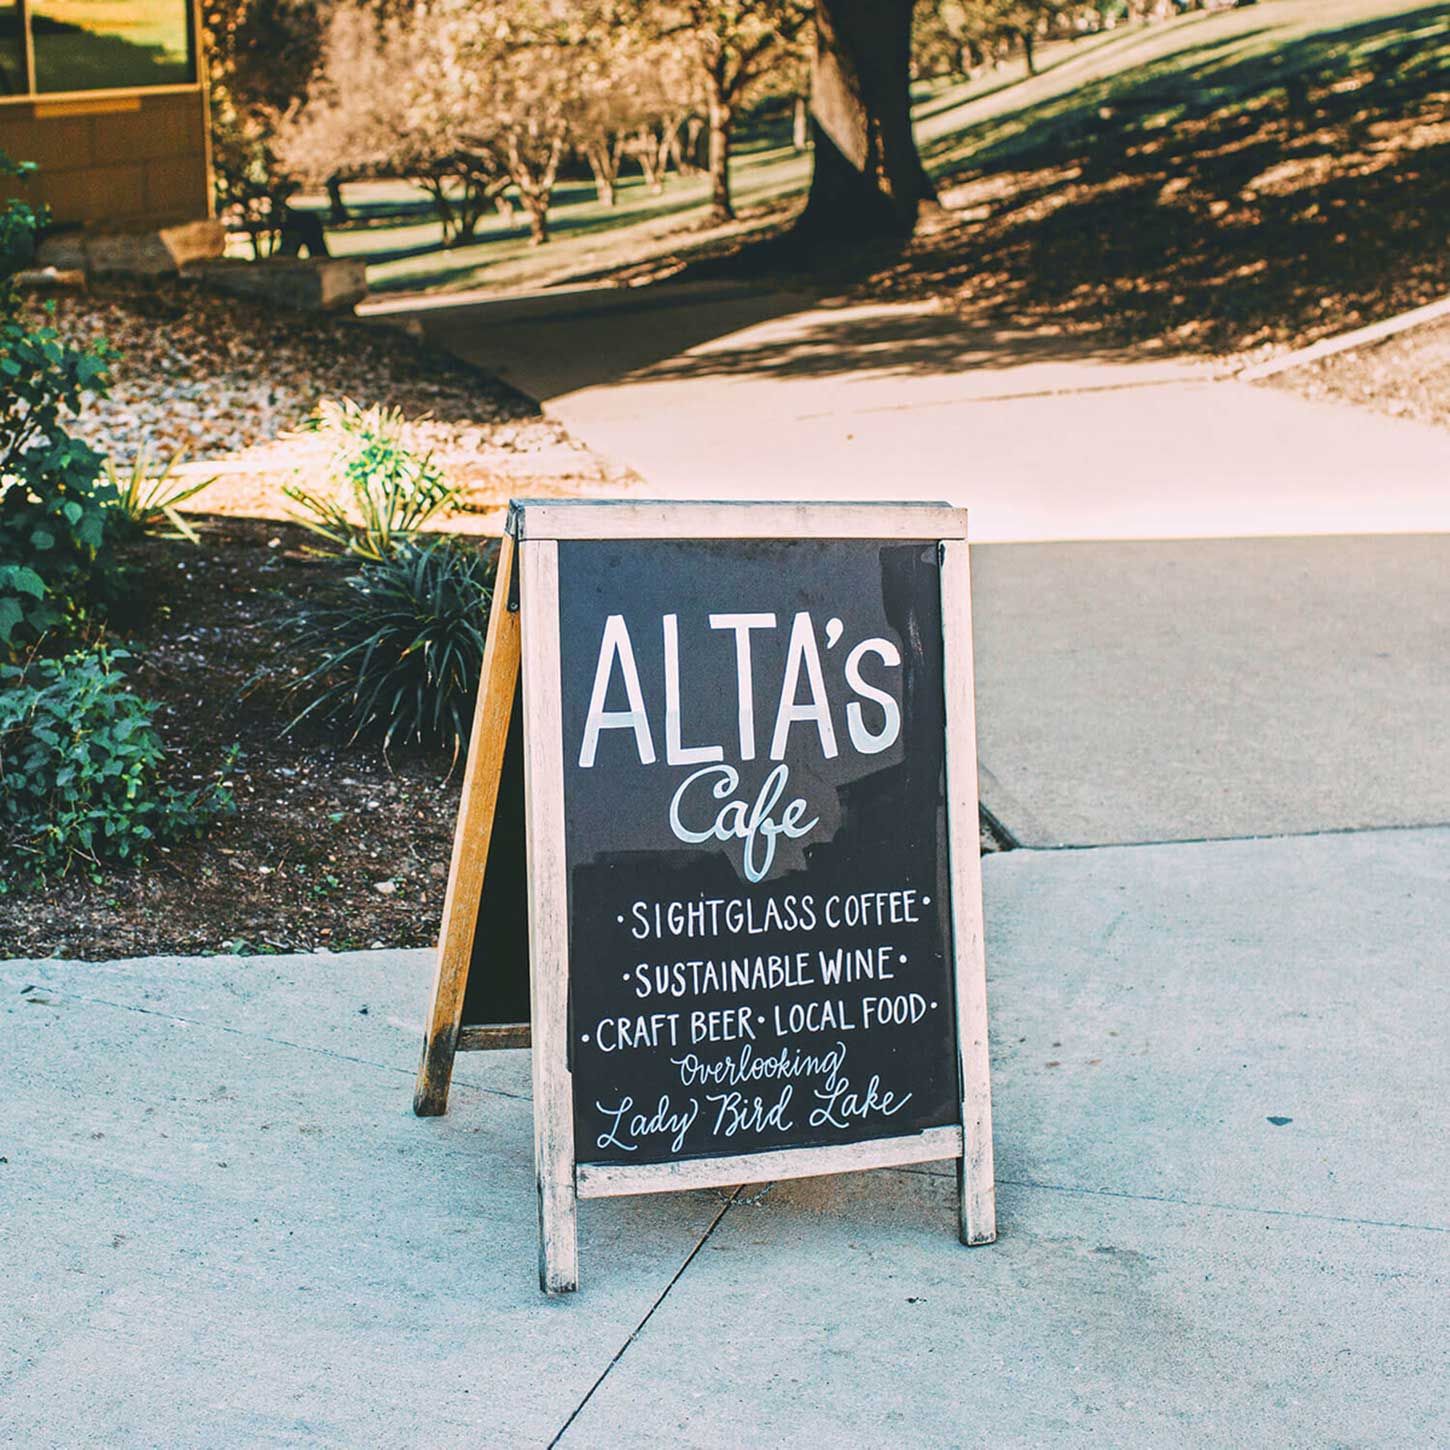 ALTA'S
Cafe
·SIGHTGLASS COFFEE·
·SUSTAINABLE WINE·
·CRAFT BEER·LOCAL FOOD·
Overlooking
Lady Bird Lake